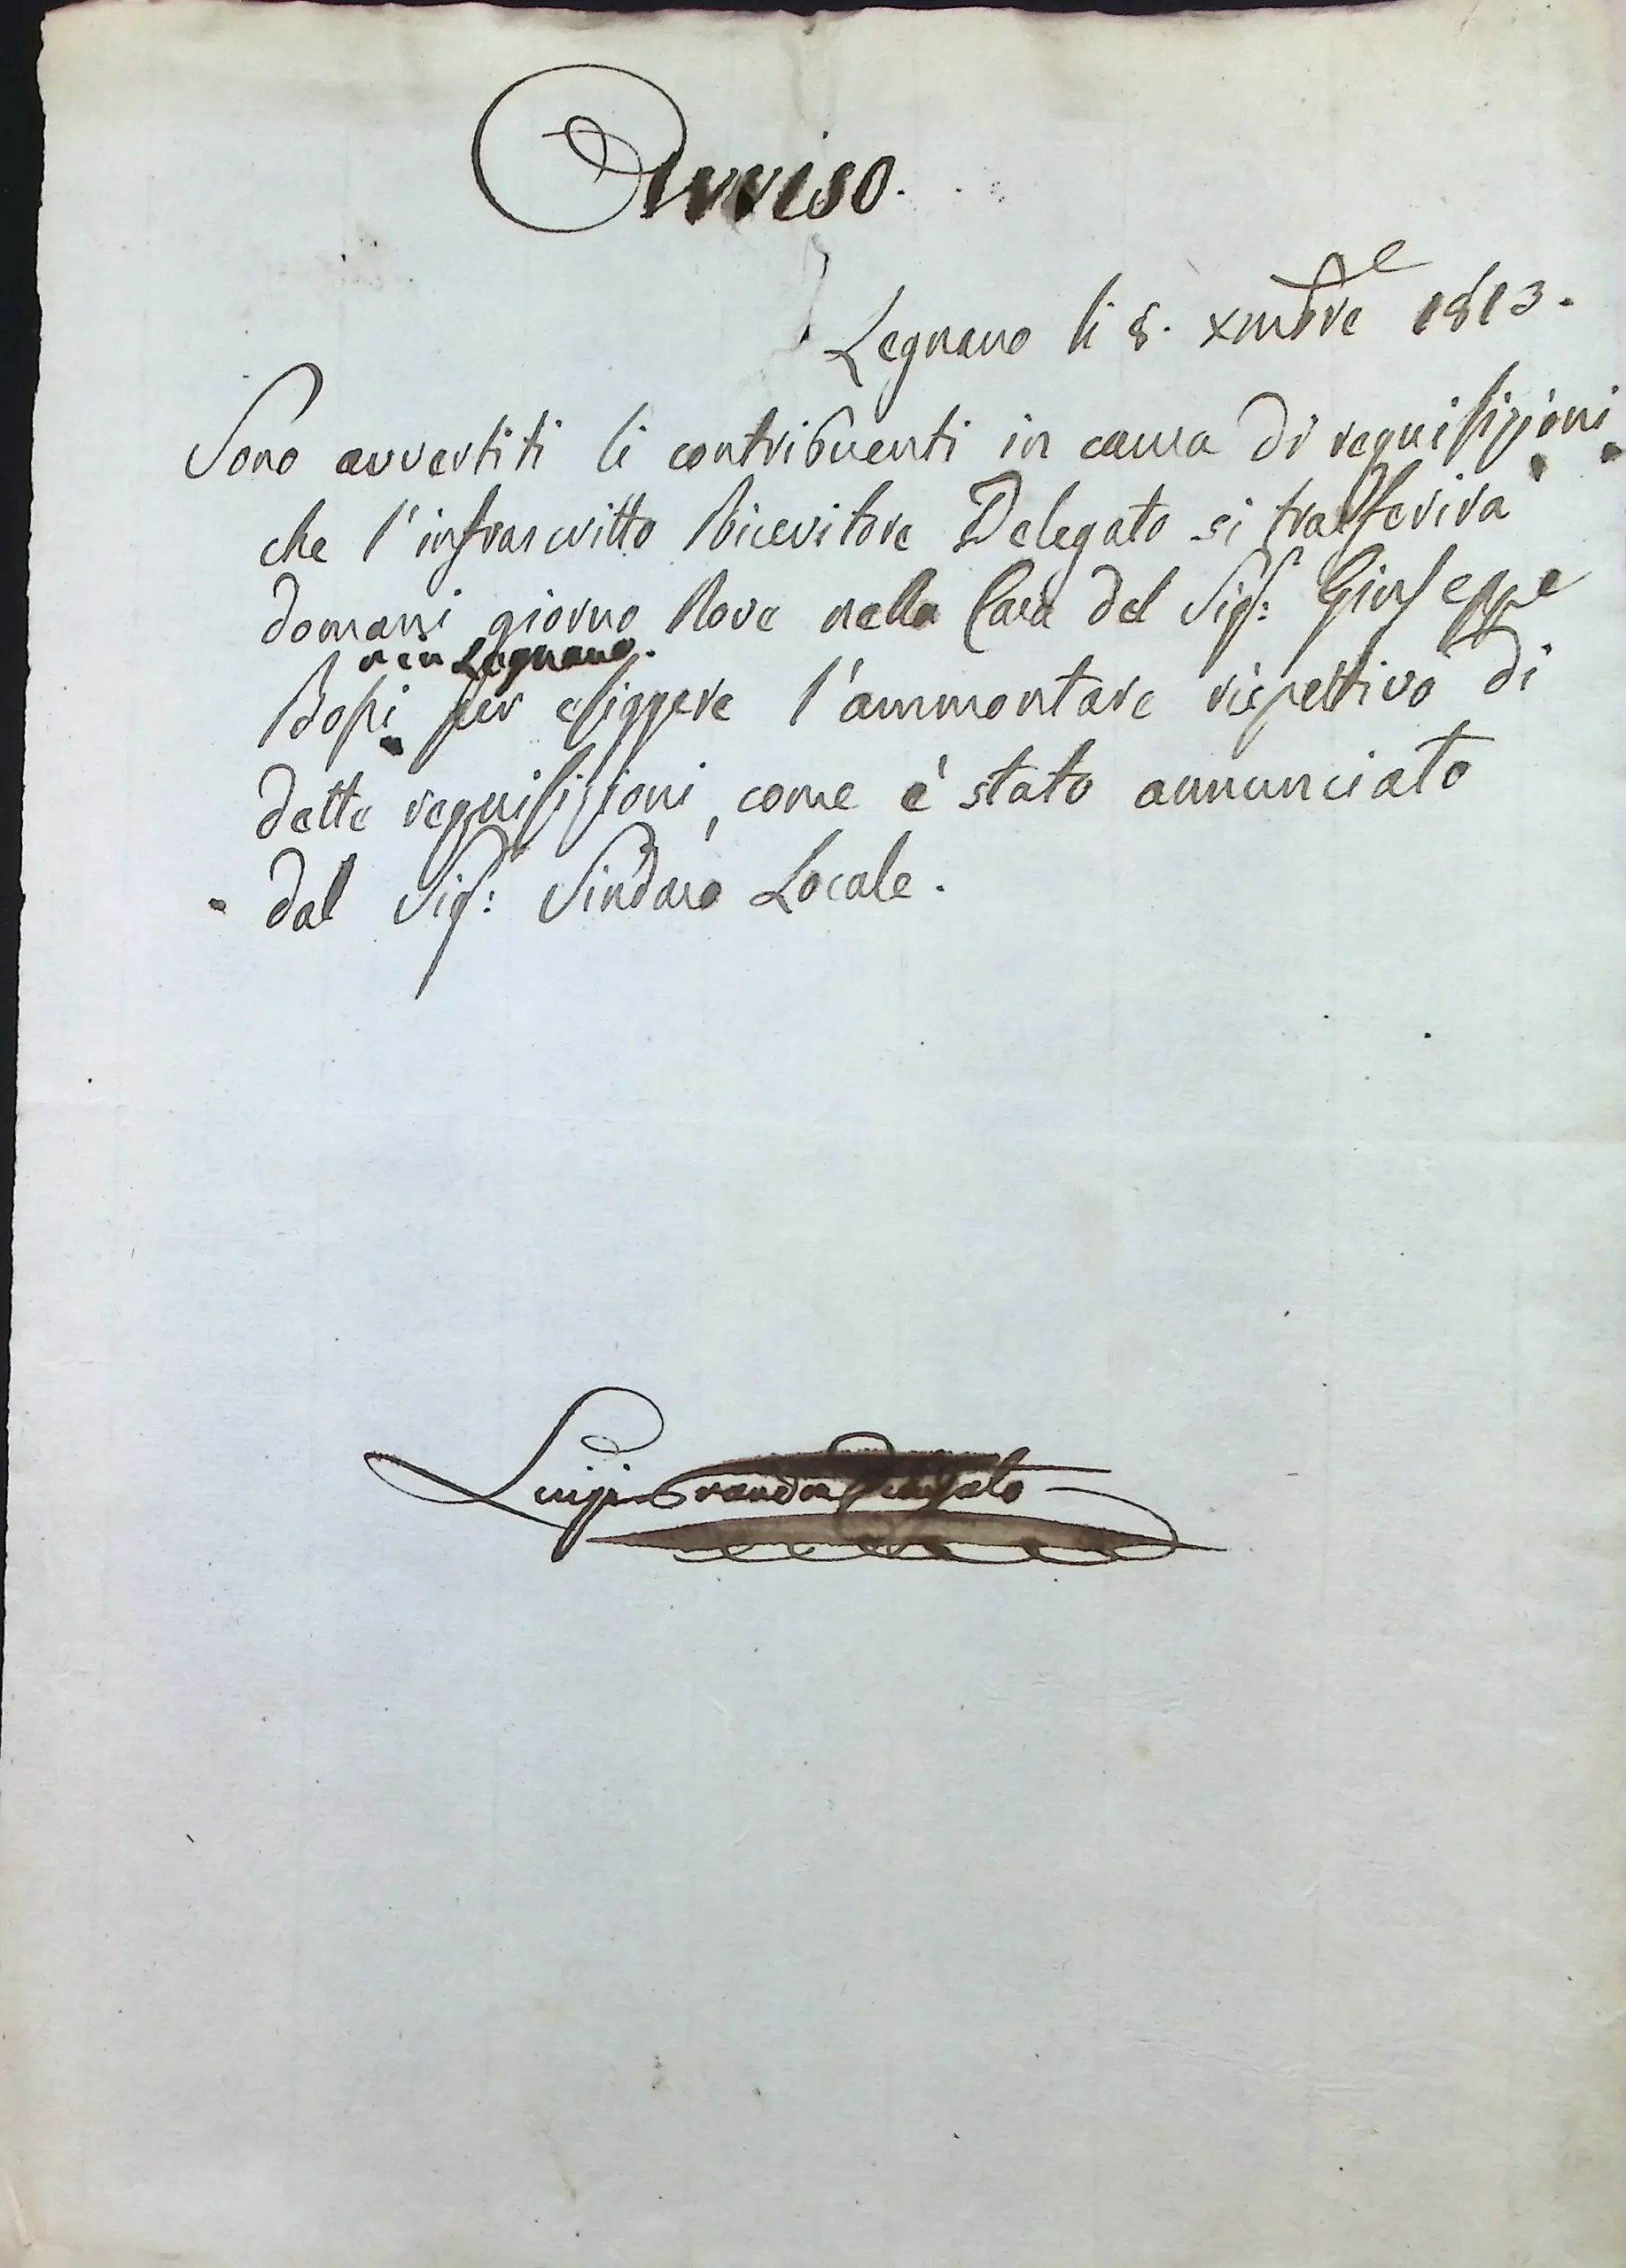 Avviso.
Legnano li 8. xmbre 1813.
Sono avvertiti li contribuenti in causa di requisizioni
che l'infrascritto Ricevitore Delegato si trasferirà
domani giorno Nove nella Casa del Sigr: Giuseppe
in Legnano.
Bossi per esiggere l'ammontare rispettivo di
dette requisizioni, come è stato annunciato
dal Sigr: Sindaco Locale.
Luigi Branda Delegato